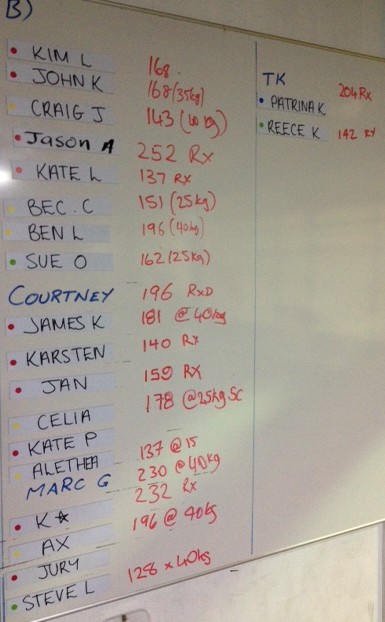 B)
KIM L 168.
JOHN K 168 (35kg)
CRAIG J 143 (40kg)
Jason A 252 Rx
KATE L 137 RX
BEC.C 151 (25kg)
BEN L 196 (40kg)
SUE O 162 (25kg)
COURTNEY 196 RxD
JAMES K 181 @ 40kg
KARSTEN 140 Rx
JAN 159 RX
CELIA 178 @25kg SC
KATE P 137 @ 15
ALETHEA 230 @ 40kg
MARC G 232 Rx
K☆ 196 @ 40kg
AX
JURY 128 x 40kg
STEVE L
TK
PATRINA K 204 Rx
REECE K 142 RX